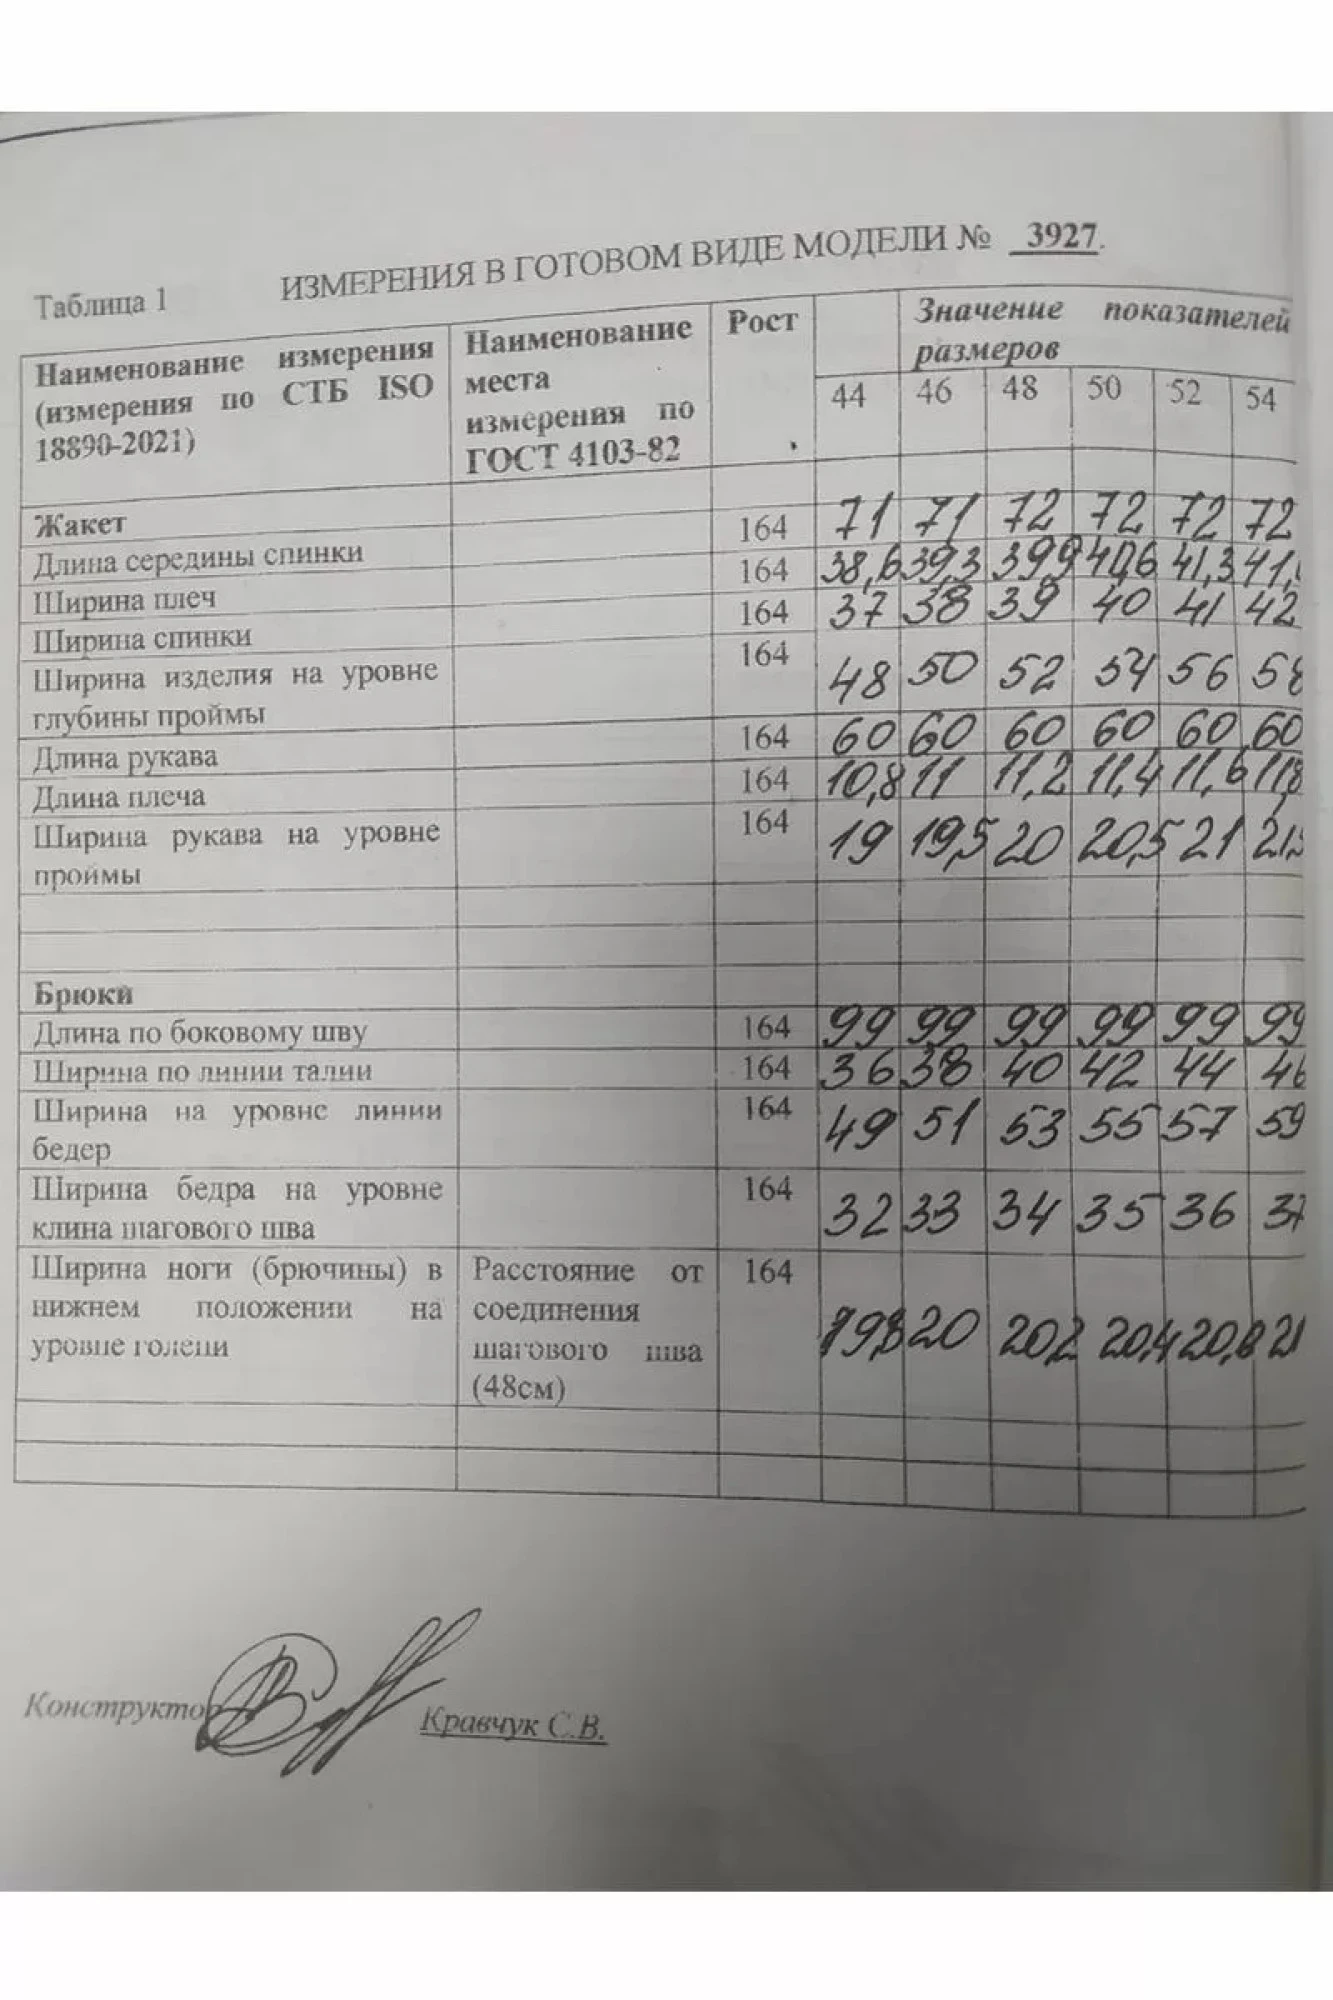 ИЗМЕРЕНИЯ В ГОТОВОМ ВИДЕ МОДЕЛИ № 3927.
Таблица 1
Наименование измерения (измерения по СТБ ISO 18890-2021) Наименование места измерения по ГОСТ 4103-82 Рост Значение показателей размеров
44 46 48 50 52 54
Жакет
Длина середины спинки 164 71 71 72 72 72 72
Ширина плеч 164 38,6 39,3 39,9 40,6 41,3
Ширина спинки 164 37 38 39 40 41 42
Ширина изделия на уровне глубины проймы 164 48 50 52 54 56
Длина рукава 164 60 60 60 60 60 60
Длина плеча 164 10,8 11 11,2 11,4 11,6 11,8
Ширина рукава на уровне проймы 164 19 19,5 20 20,5 21 21,5
Брюки
Длина по боковому шву 164 99 99 99 99 99 99
Ширина по линии талии 164 36 38 40 42 44 46
Ширина на уровне линии бедер 164 49 51 53 55 57 59
Ширина бедра на уровне клина шагового шва 164 32 33 34 35 36 37
Ширина ноги (брючины) в нижнем положении на уровне голени Расстояние от соединения шагового шва (48см) 164 19,8 20 20,2 20,4 21
Конструктор Кравчук С.В.